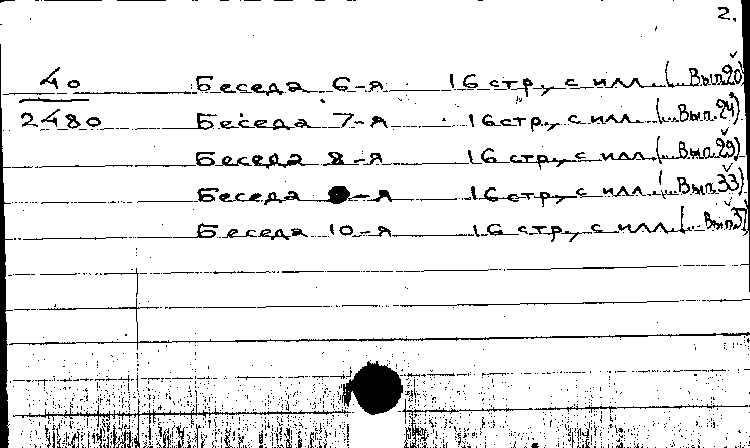 2.
40 Беседа 6-я 16 стр., с илл. (...Вып.20)
2480 Беседа 7-я 16 стр., с илл. (...Вып.24)
Беседа 8-я 16 стр., с илл. (...Вып.29)
Беседа 9-я 16 стр., с илл. (...Вып.33)
Беседа 10-я 16 стр., с илл. (...Вып.